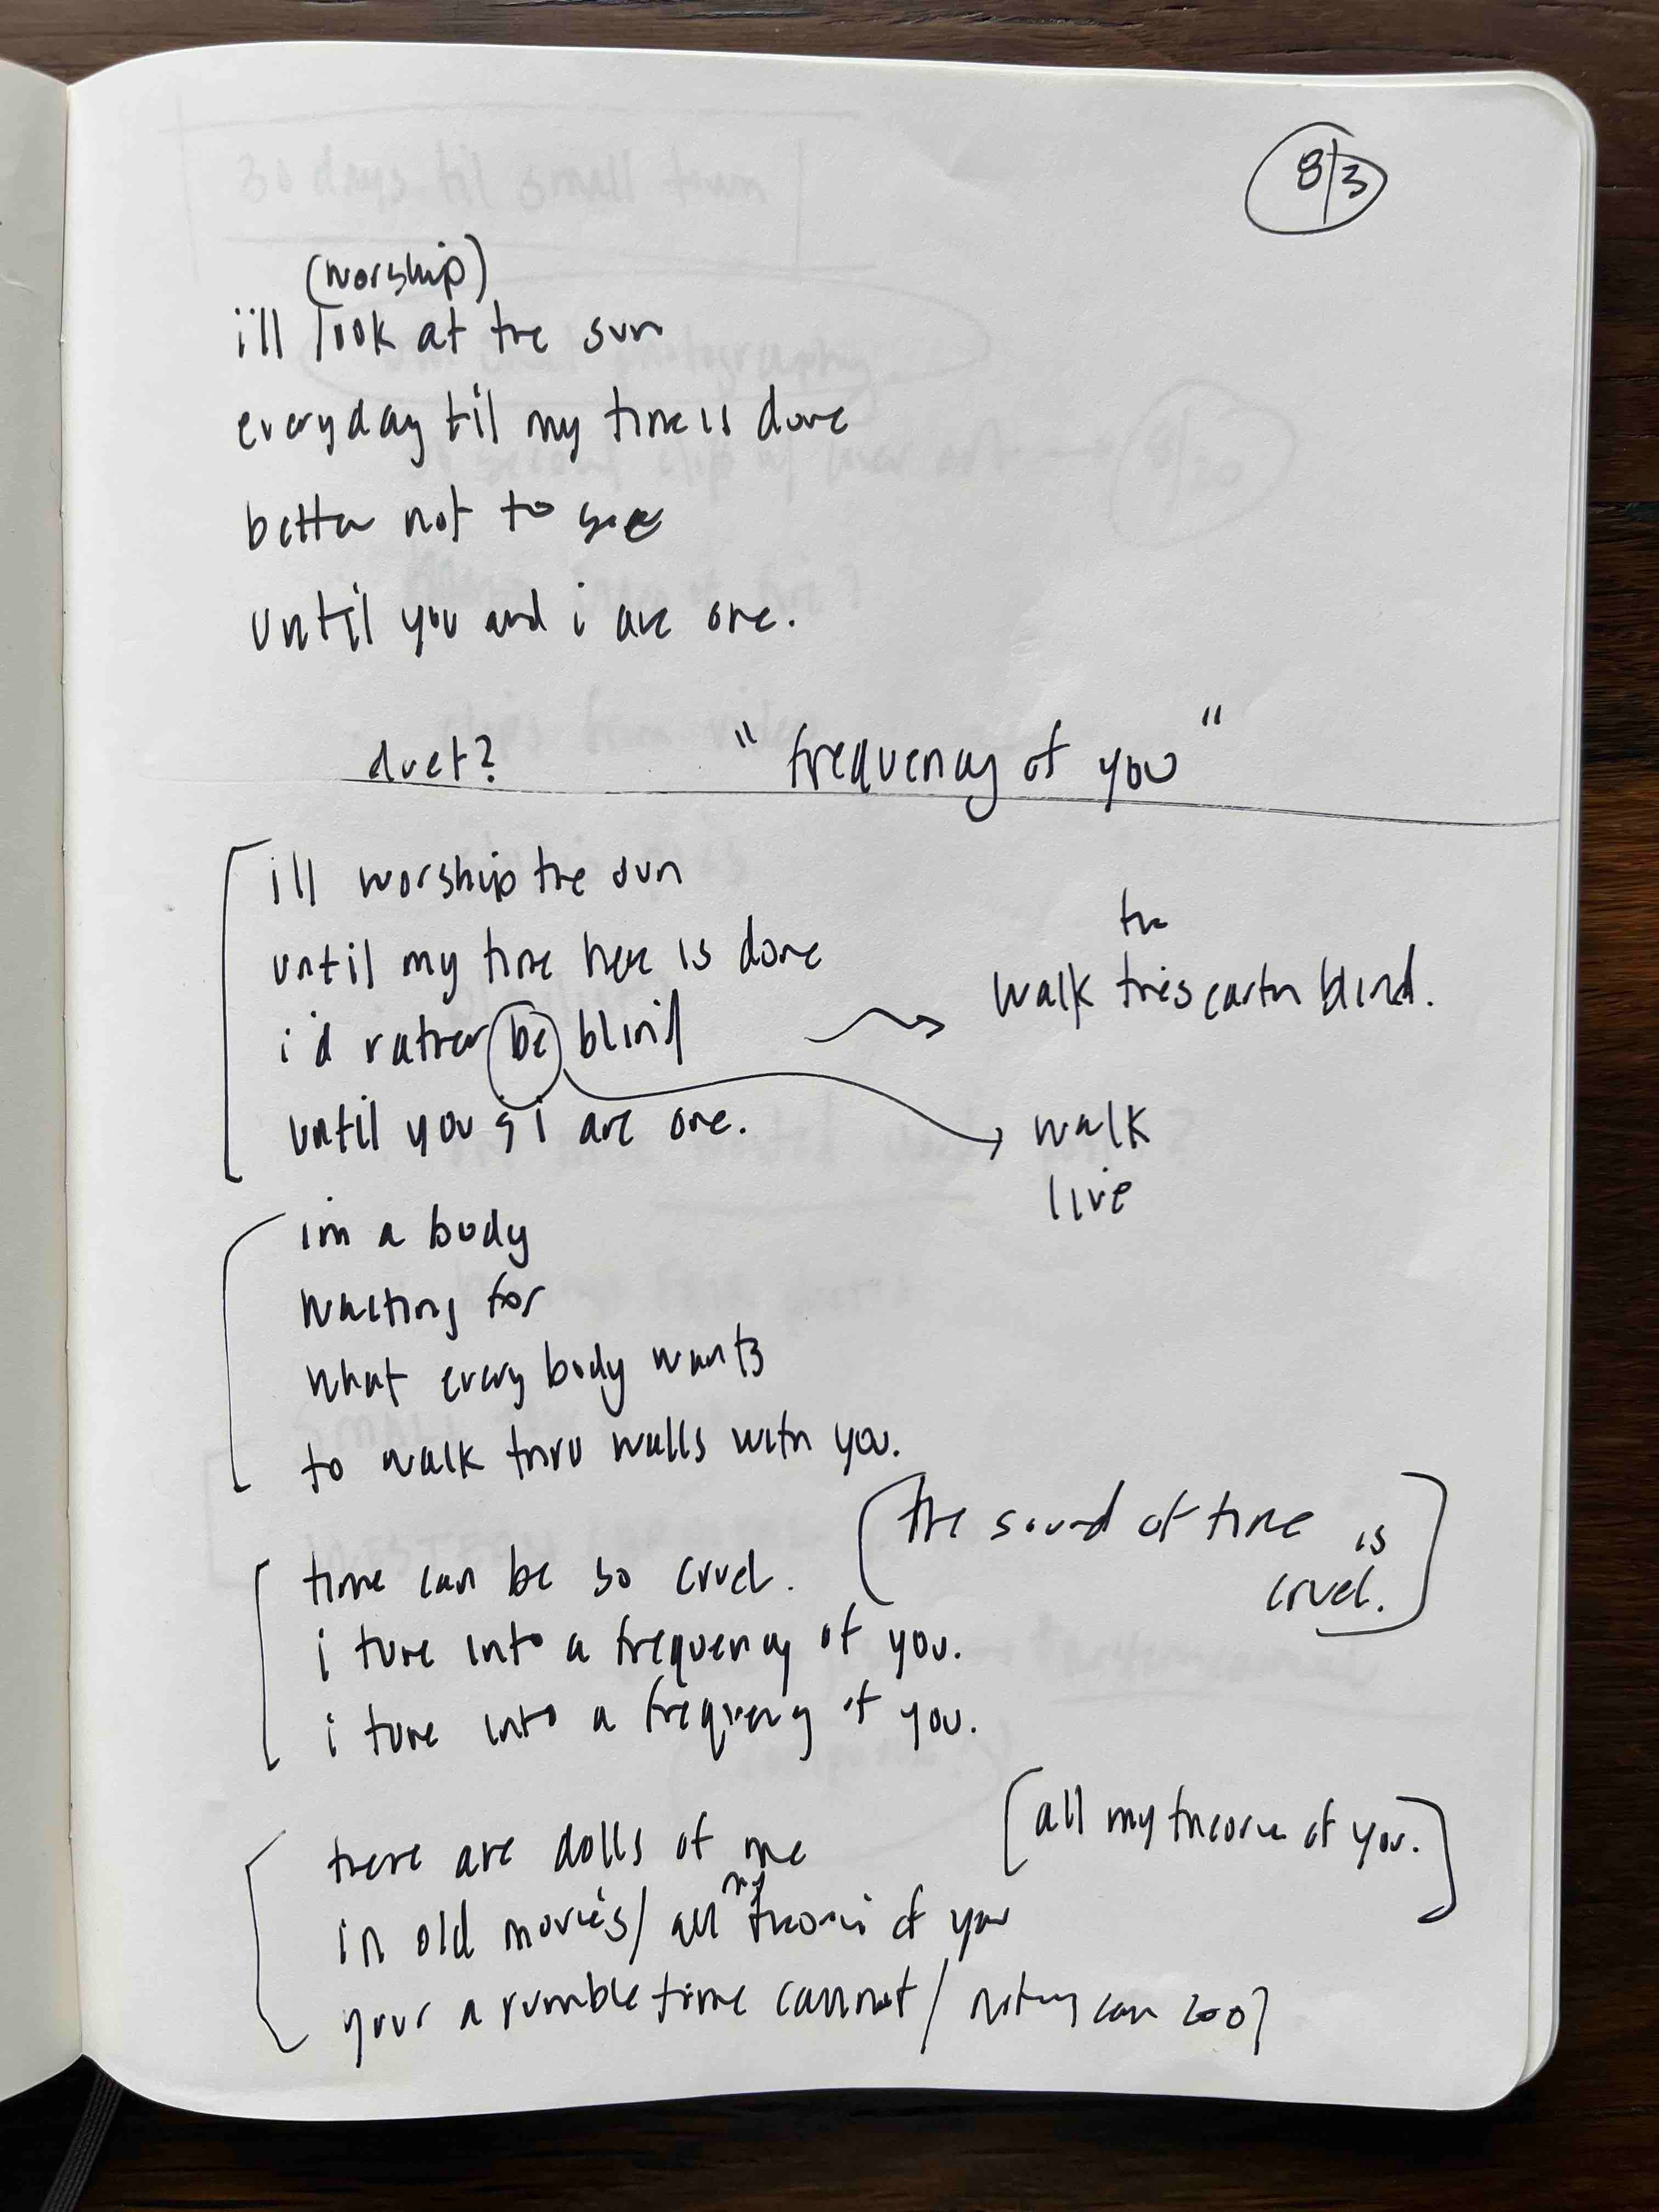 8/3
(worship)
i'll look at the sun
everyday til my time is done
better not to see
until you and i are one.
duet? "frequency of you"
ill worship the sun
until my time here is done
the
i'd rather be blind walk this earth blind.
until you & i are one. walk
live
im a body
waiting for
what every body wants
to walk thru walls with you.
[the sound of time is
cruel.]
time can be so cruel.
i tune into a frequency of you.
i tune into a frequency of you.
there are dolls of me [all my theorie of you.]
my
in old movies/ all theories of you
your a rumble time cannot/ nothing can